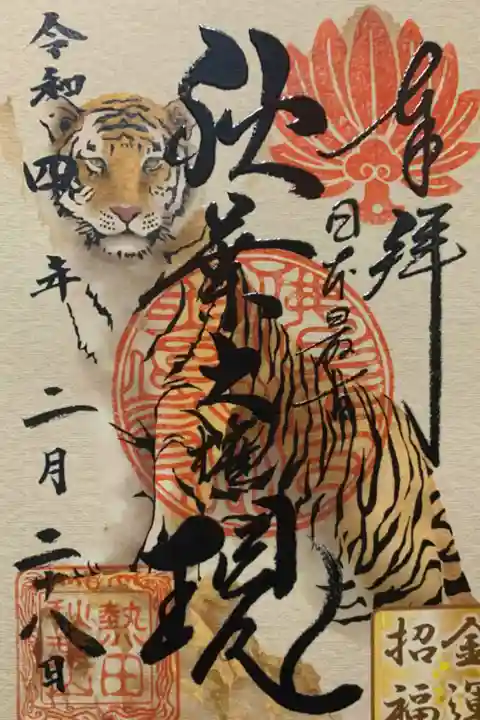 奉拝
日本最首
秋葉大権現
令和四年二月二十八日
熱田
秋葉山
金運
招福